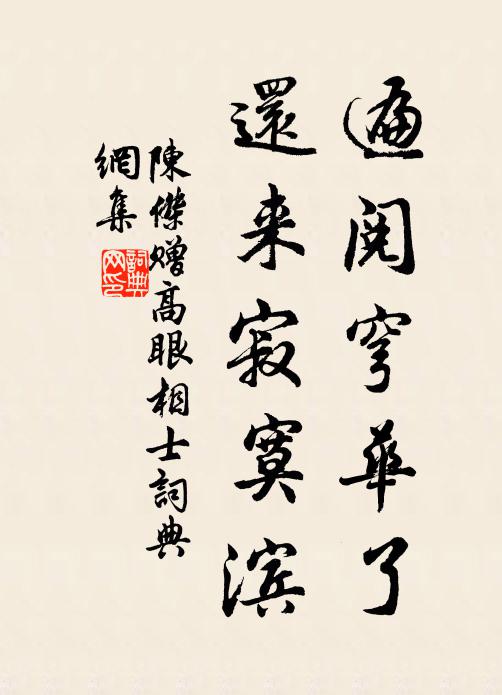 遍閱穹華了
還来寂寞滨
陳傑贈高眼相士詞典
網集
詞典
网印